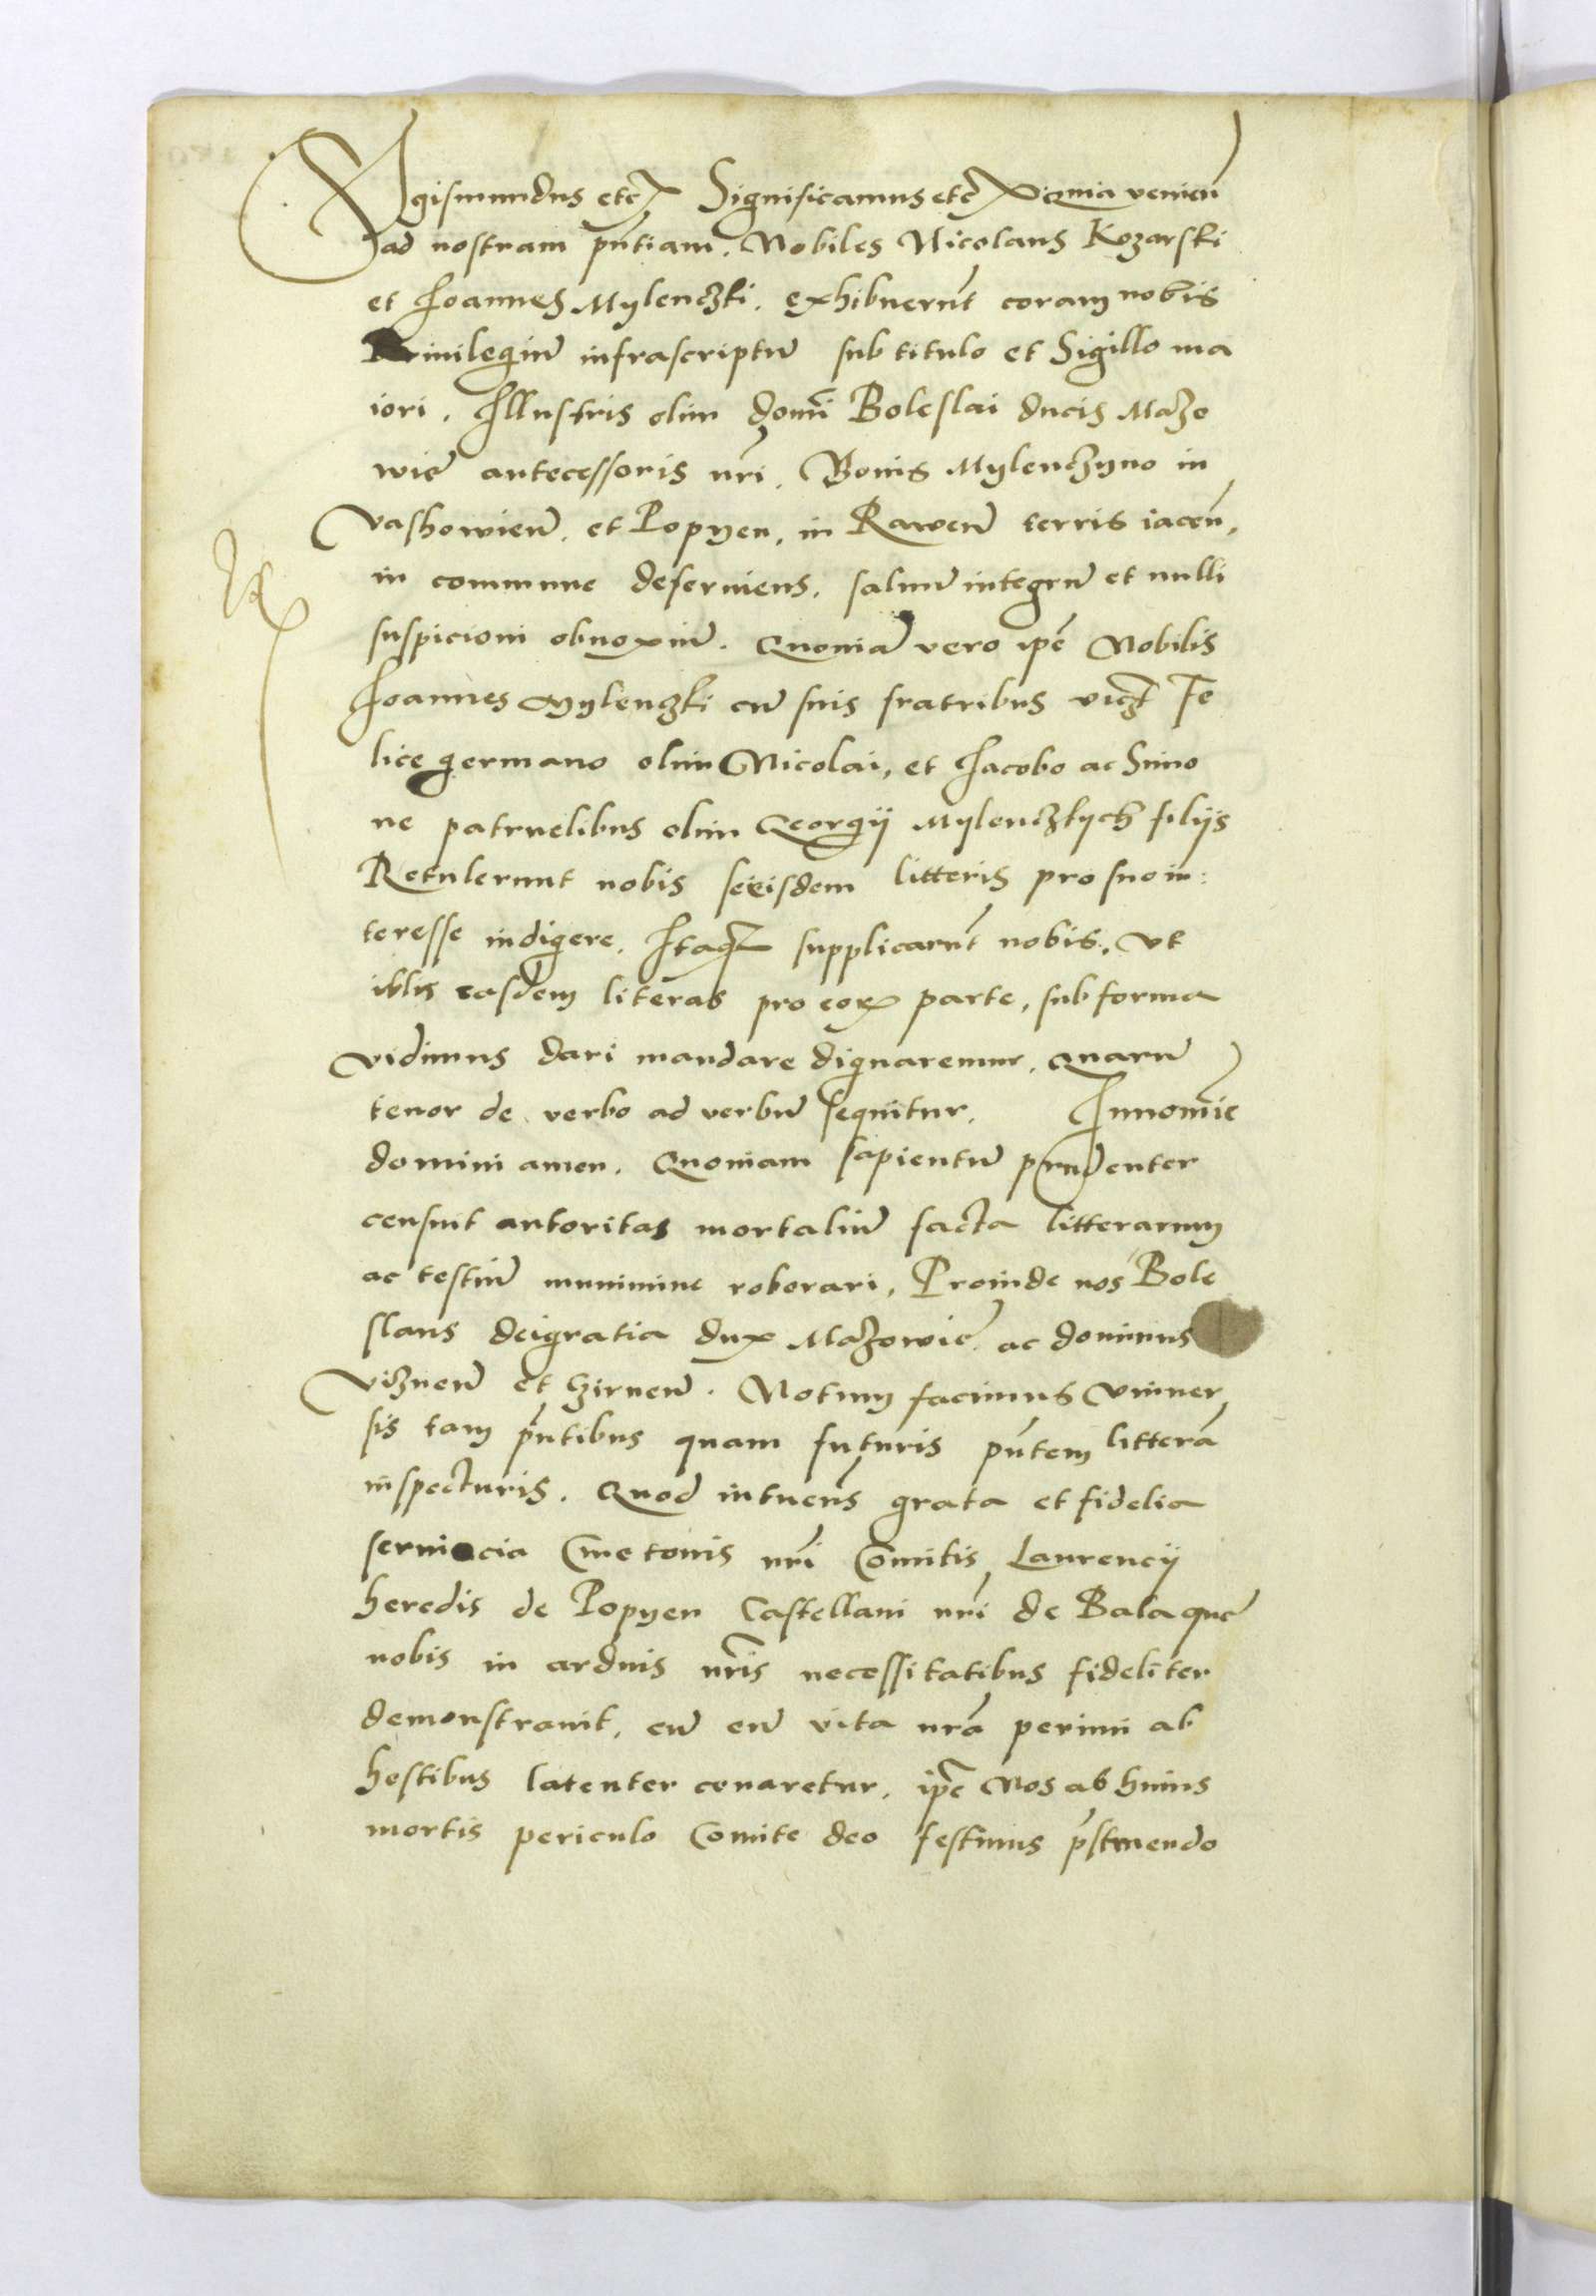 Sigismundus etc Significamus etc Quia venien̄
ad nostram pn̄tiam. Nobiles Nicolaus Kozarski
et Joannes Mylenczki. exhibuerūt coram nobis
Privilegiū infrascriptū sub titulo et Sigillo ma
iori. Illustris olim domī Boleslai ducis Mazo
wie antecessoris nr̄i. Bonis Mylenczyno in
vashowien̄. et Popyen, in Rawen̄ terris iacen̄,
in commune deserviens. salvū integrū et nulli
suspicioni obnoxiū. Quoniā vero ip̄e Nobilis
Joannes Mylenczki cū suis fratribus vicz Fe
lice germano olim Nicolai, et Jacobo ac Simo
ne patruelibus olim Georgij Mylenczkych filijs
Retulerunt nobis se eisdem litteris pro suo in:
teresse indigere. Itaqz supplicarūt nobis. Vt
illis easdem literas pro eorꝝ parte, sub forma
vidimus dari mandare dignaremur. Quarū
tenor de verbo ad verbū sequitur. In nomīe
domini amen. Quoniam sapientū prudenter
censuit autoritas mortaliū facta litterarum
ac testiū munimine roborari. Proinde nos Bole
slaus dei gratia dux Mazowie ac dominus
Viznen̄ et Czirnen̄. Notum facimus Vniver
sis tam pn̄tibus quam futuris pn̄tem litterā
inspecturis. Quod intuen̄s grata et fidelia
servicia Cmetonis nr̄i Comitis Laurencij
heredis de Popyen Castellani nr̄i de Bala que
nobis in arduis nr̄is necessitatibus fideliter
demonstravit, cū enī vita nr̄a perimi ab
hostibus latenter conaretur. ip̄e Nos ab huius
mortis periculo Comite deo festinus